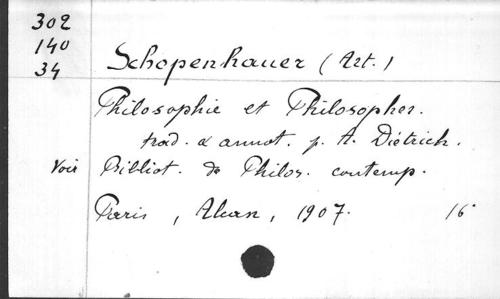 302
140
34
Schopenhauer (Art.)
Philosophie et Philosophes.
trad. & annot. p. A. Dietrich.
Voir Bibliot. de Philos. contemp.
Paris, Alcan, 1907. 16°